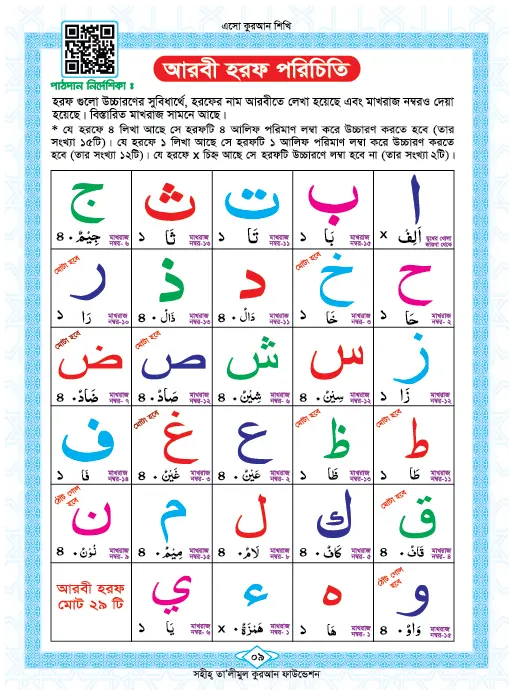 এসো কুরআন শিখি
আরবী হরফ পরিচিতি
পাঠদান নির্দেশিকা ঃ
হরফ গুলো উচ্চারণের সুবিধার্থে, হরফের নাম আরবীতে লেখা হয়েছে এবং মাখরাজ নম্বরও দেয়া
হয়েছে। বিস্তারিত মাখরাজ সামনে আছে।
* যে হরফে ৪ লিখা আছে সে হরফটি ৪ আলিফ পরিমাণ লম্বা করে উচ্চারণ করতে হবে (তার
সংখ্যা ১৫টি)। যে হরফে ১ লিখা আছে সে হরফটি ১ আলিফ পরিমাণ লম্বা করে উচ্চারণ করতে
হবে (তার সংখ্যা ১২টি)। যে হরফে x চিহ্ন আছে সে হরফটি উচ্চারণে লম্বা হবে না (তার সংখ্যা ২টি)।
ا ب ت ث ج
মুখের খোলা জায়গা থেকে اَلِفْ x
মাখরাজ নম্বর-১৫ بَا ১
মাখরাজ নম্বর-১১ تَا ১
মাখরাজ নম্বর-১৩ ثَا ১
মাখরাজ নম্বর- ৬ جِيْمْ ৪
ح خ د ذ ر
মোটা হবে
মোটা হবে
মাখরাজ নম্বর- ২ حَا ১
মাখরাজ নম্বর- ৩ خَا ১
মাখরাজ নম্বর-১১ دَالْ ৪
মাখরাজ নম্বর-১৩ ذَالْ ৪
মাখরাজ নম্বর-১০ رَا ১
ز س ش ص ض
মোটা হবে
মোটা হবে
মাখরাজ নম্বর-১২ زَا ১
মাখরাজ নম্বর-১২ سِيْنْ ৪
মাখরাজ নম্বর- ৬ شِيْنْ ৪
মাখরাজ নম্বর-১২ صَادْ ৪
মাখরাজ নম্বর- ৭ ضَادْ ৪
ط ظ ع غ ف
মোটা হবে
মোটা হবে
মোটা হবে
মাখরাজ নম্বর-১১ طَا ১
মাখরাজ নম্বর-১৩ ظَا ১
মাখরাজ নম্বর- ২ عَيْنْ ৪
মাখরাজ নম্বর- ৩ غَيْنْ ৪
মাখরাজ নম্বর-১৪ فَا ১
ق ك ل م ن
মোটা হবে
ঠোঁট গোল হবে
মাখরাজ নম্বর- ৪ قَافْ ৪
মাখরাজ নম্বর- ৫ كَافْ ৪
মাখরাজ নম্বর- ৮ لَامْ ৪
মাখরাজ নম্বর-১৫ مِيْمْ ৪
মাখরাজ নম্বর- ৯ نُوْنْ ৪
و ه ء ي
ঠোঁট গোল হবে
মাখরাজ নম্বর-১৫ وَاوْ ৪
মাখরাজ নম্বর- ১ هَا ১
মাখরাজ নম্বর- ১ هَمْزَةْ x
মাখরাজ নম্বর- ৬ يَا ১
আরবী হরফ
মোট ২৯ টি
০৯
সহীহ্ তা'লীমুল কুরআন ফাউন্ডেশন